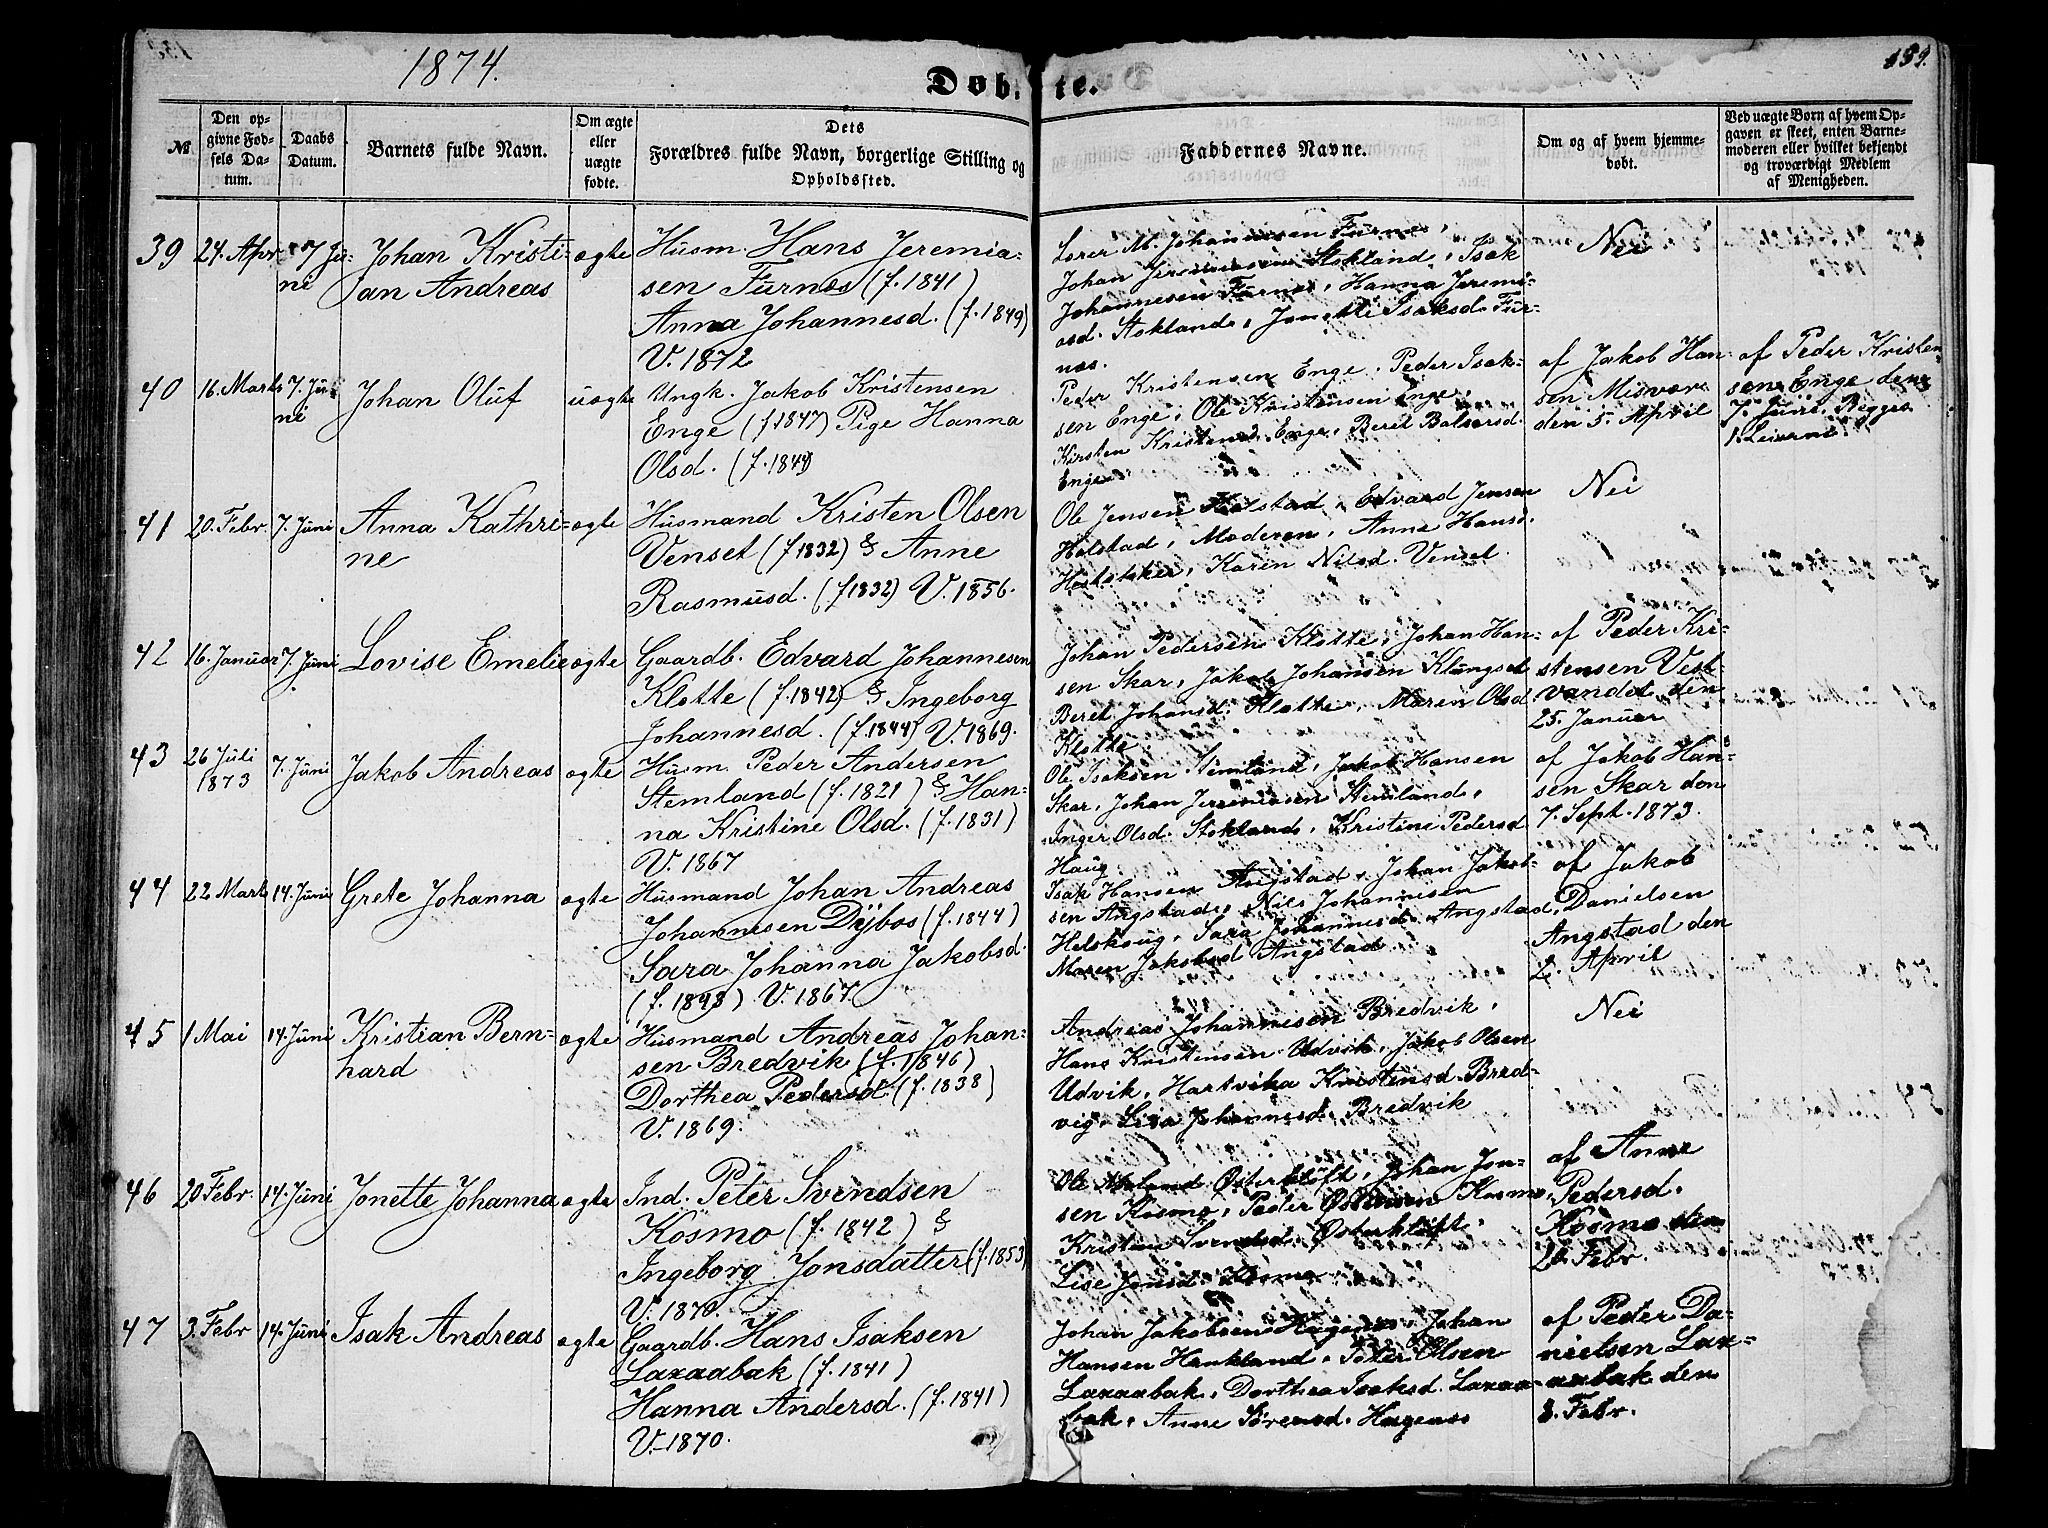 1874.
Døbte.
139.
№
Den op-
givne Fød-
sels Da-
tum.
Daabs
Datum.
Barnets fulde Navn.
Om ægte
eller
uægte
fødte.
Dets
Forældres fulde Navn, borgerlige Stilling og
Opholdssted.
Faddernes Navne.
Om og af hvem hjemme-
døbt.
Ved uægte Børn af hvem Op-
gaven er skeet, enten Barne-
moderen eller hvilket bekjendt
og troværdigt Medlem
af Menigheden.
39
24. Apr
7 Ju-
ni
Johan Kristi-
an Andreas
ægte
Husm. Hans Jeremia-
sen Furnes (f. 1841)
Anna Johannesd. (f. 1849)
V. 1872
Johannesen Furnes,
Johan Jeremiasen Stokland, Isak
Johannesen Furnes, Hanna Jeremi-
asd. Stokland, Isaksd. Fur-
nes.
Nei
40
16. Marts
7. Ju-
ni
Johan Oluf
uægte
Ungk. Jakob Kristensen
Enge (f 1847) Pige Hanna
Olsd. (f. 1844)
Peder Kristensen Enge, Peder Isak-
sen Enge, Ole Kristensen Enge,
Kirsten Kristensd. Enge, Berit Balsersd.
Enge
af Jakob Han-
sen Misvær
den 5. April
af Peder Kristen-
sen Enge den
7. Juni. Begges
1. Leierm.
41
20. Febr.
7. Juni
Anna Kathri-
ne
ægte
Husmand Kristen Olsen
Venset (f 1832) & Anne
Rasmusd. (f 1832) V. 1856.
Ole Jensen Holstad, Edvard Jensen
Holstad, Moderen, Anne Hansd.
Karen Nilsd. Venset
Nei
42
16. Januar
7. Juni
Lovise Emelie
ægte
Gaardb. Edvard Johannesen
Kløtte (f. 1842) & Ingeborg
Johannesd. (f. 1844) V. 1869.
Johan Pedersen Kløtte, Johan Han-
sen Skar, Jakob Johansen Klungset
Beret Johansd. Kløtte, Maren Olsd
Kløtte
af Peder Kri-
stensen Vest-
vandet den
25. Januar
43
26 Juli
1873
7. Juni
Jakob Andreas
ægte
Husm. Peder Andersen
Stemland (f. 1821) & Han-
na Kristine Olsd. (f. 1831)
V. 1867
Ole Isaksen Stemland, Jakob Hansen
Skar, Johan Jeremiasen Stemland,
Inger Olsd. Stokland, Kristine Pedersd
Haug
af Jakob Han-
sen Skar den
7. Sept. 1873.
44
22 Marts
14. Juni
Grete Johanna
ægte
Husmand Johan Andreas
Johannesen Dybos (f. 1844)
Sara Johanna Jakobsd.
(f. 1848) V. 1867.
Isak Hansen Angstad, Johan Jakob-
sen Angstad, Nils Johannesen
Helskoug, Sara Johannesd. Angstad,
Maren Jakobsd Angstad
af Jakob
Danielsen
Angstad den
2. April
45
1 Mai
14. Juni
Kristian Bern-
hard
ægte
Husmand Andreas Johan-
sen Bredvik (f. 1846)
Dorthea Pedersd (f. 1838)
V. 1869.
Andreas Johannesen Bredvik,
Hans Kristensen Udvik, Jakob Olsen
Udvik, Hartvika Kristensd. Bred-
vig, Lisa Johannesd. Bredvik
Nei
46
20 Febr.
14. Juni
Jonette Johanna
ægte
Ind. Peter Svendsen
Kosmo (f. 1842) &
Ingeborg Jonsdatter (f. 1853)
V. 1870.
Ole Østerkløft, Johan Jon-
sen Kosmo, Peder Kosmo,
Svendsd. Østerkløft,
Lise Jonsd. Kosmo
af Anne
Pedersd.
Kosmo den
20. Febr.
47
3. Febr
14. Juni
Isak Andreas
ægte
Gaardb. Hans Isaksen
Laxaabak (f. 1841)
Hanna Andersd. (f. 1841)
V. 1870.
Johan Jakobsen Johan
Hansen Peder Olsen
Laxaabak, Dorthea Isaksd. Laxaa-
bak, Anne Sørensd. Hagenæs
af Peder Da-
nielsen Lax-
aabak den
8. Febr.